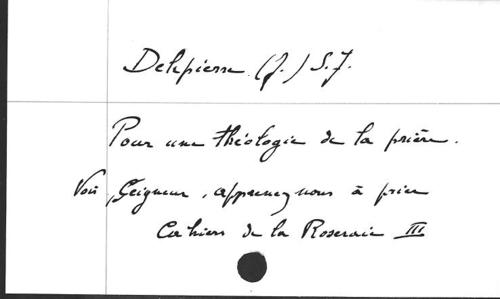 Delepierre (J.) S.J.
Pour une théologie de la prière.
Voir, Seigneur, apprenez nous à prier
Cahiers de la Roseraie III